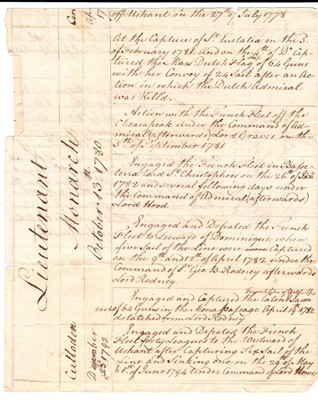 off Ushant on the 27th of July 1778
At the Capture of St. Eustatia on the 3
of February 1781. And on the 4th of Do. Cap
tured the Mars Dutch Flag of 64 Guns
with her Convoy of 24 Sail after an Ac
tion in which the Dutch Admiral
was Kill'd.
Action with the French Fleet off the
Cheasapeak under the Command of Ad
miral (afterwards) Lord Graves on the
5th of September 1781
Engaged the French Fleet in Basse
terra Road St. Christophers on the 26th of Jany
1782 and several following days under
the Command of Admiral (afterwards)
Lord Hood
Engaged and Defeated the French
Fleet to Leeward of Dominique when
five Sail of the Line were Captured
on the 9th and 12th of April 1782 under the
Command of Sr. Geo. B. Rodney afterwards
Lord Rodney.
Engaged and Captured the Caton Jason
each of 64 Guns in the Mona Passage April 19th 1782
detatched from Lord Rodney
Engaged and Defeated the French
Fleet forty Leagues to the Westward of
Ushant after Capturing Six Sail of the
Line and Sinking one on the 29th of May
& 1st of June 1794 under Command of Lord Howe
Lieutenant
Monarch
October 23th 1780
Culloden
December
23th 1792